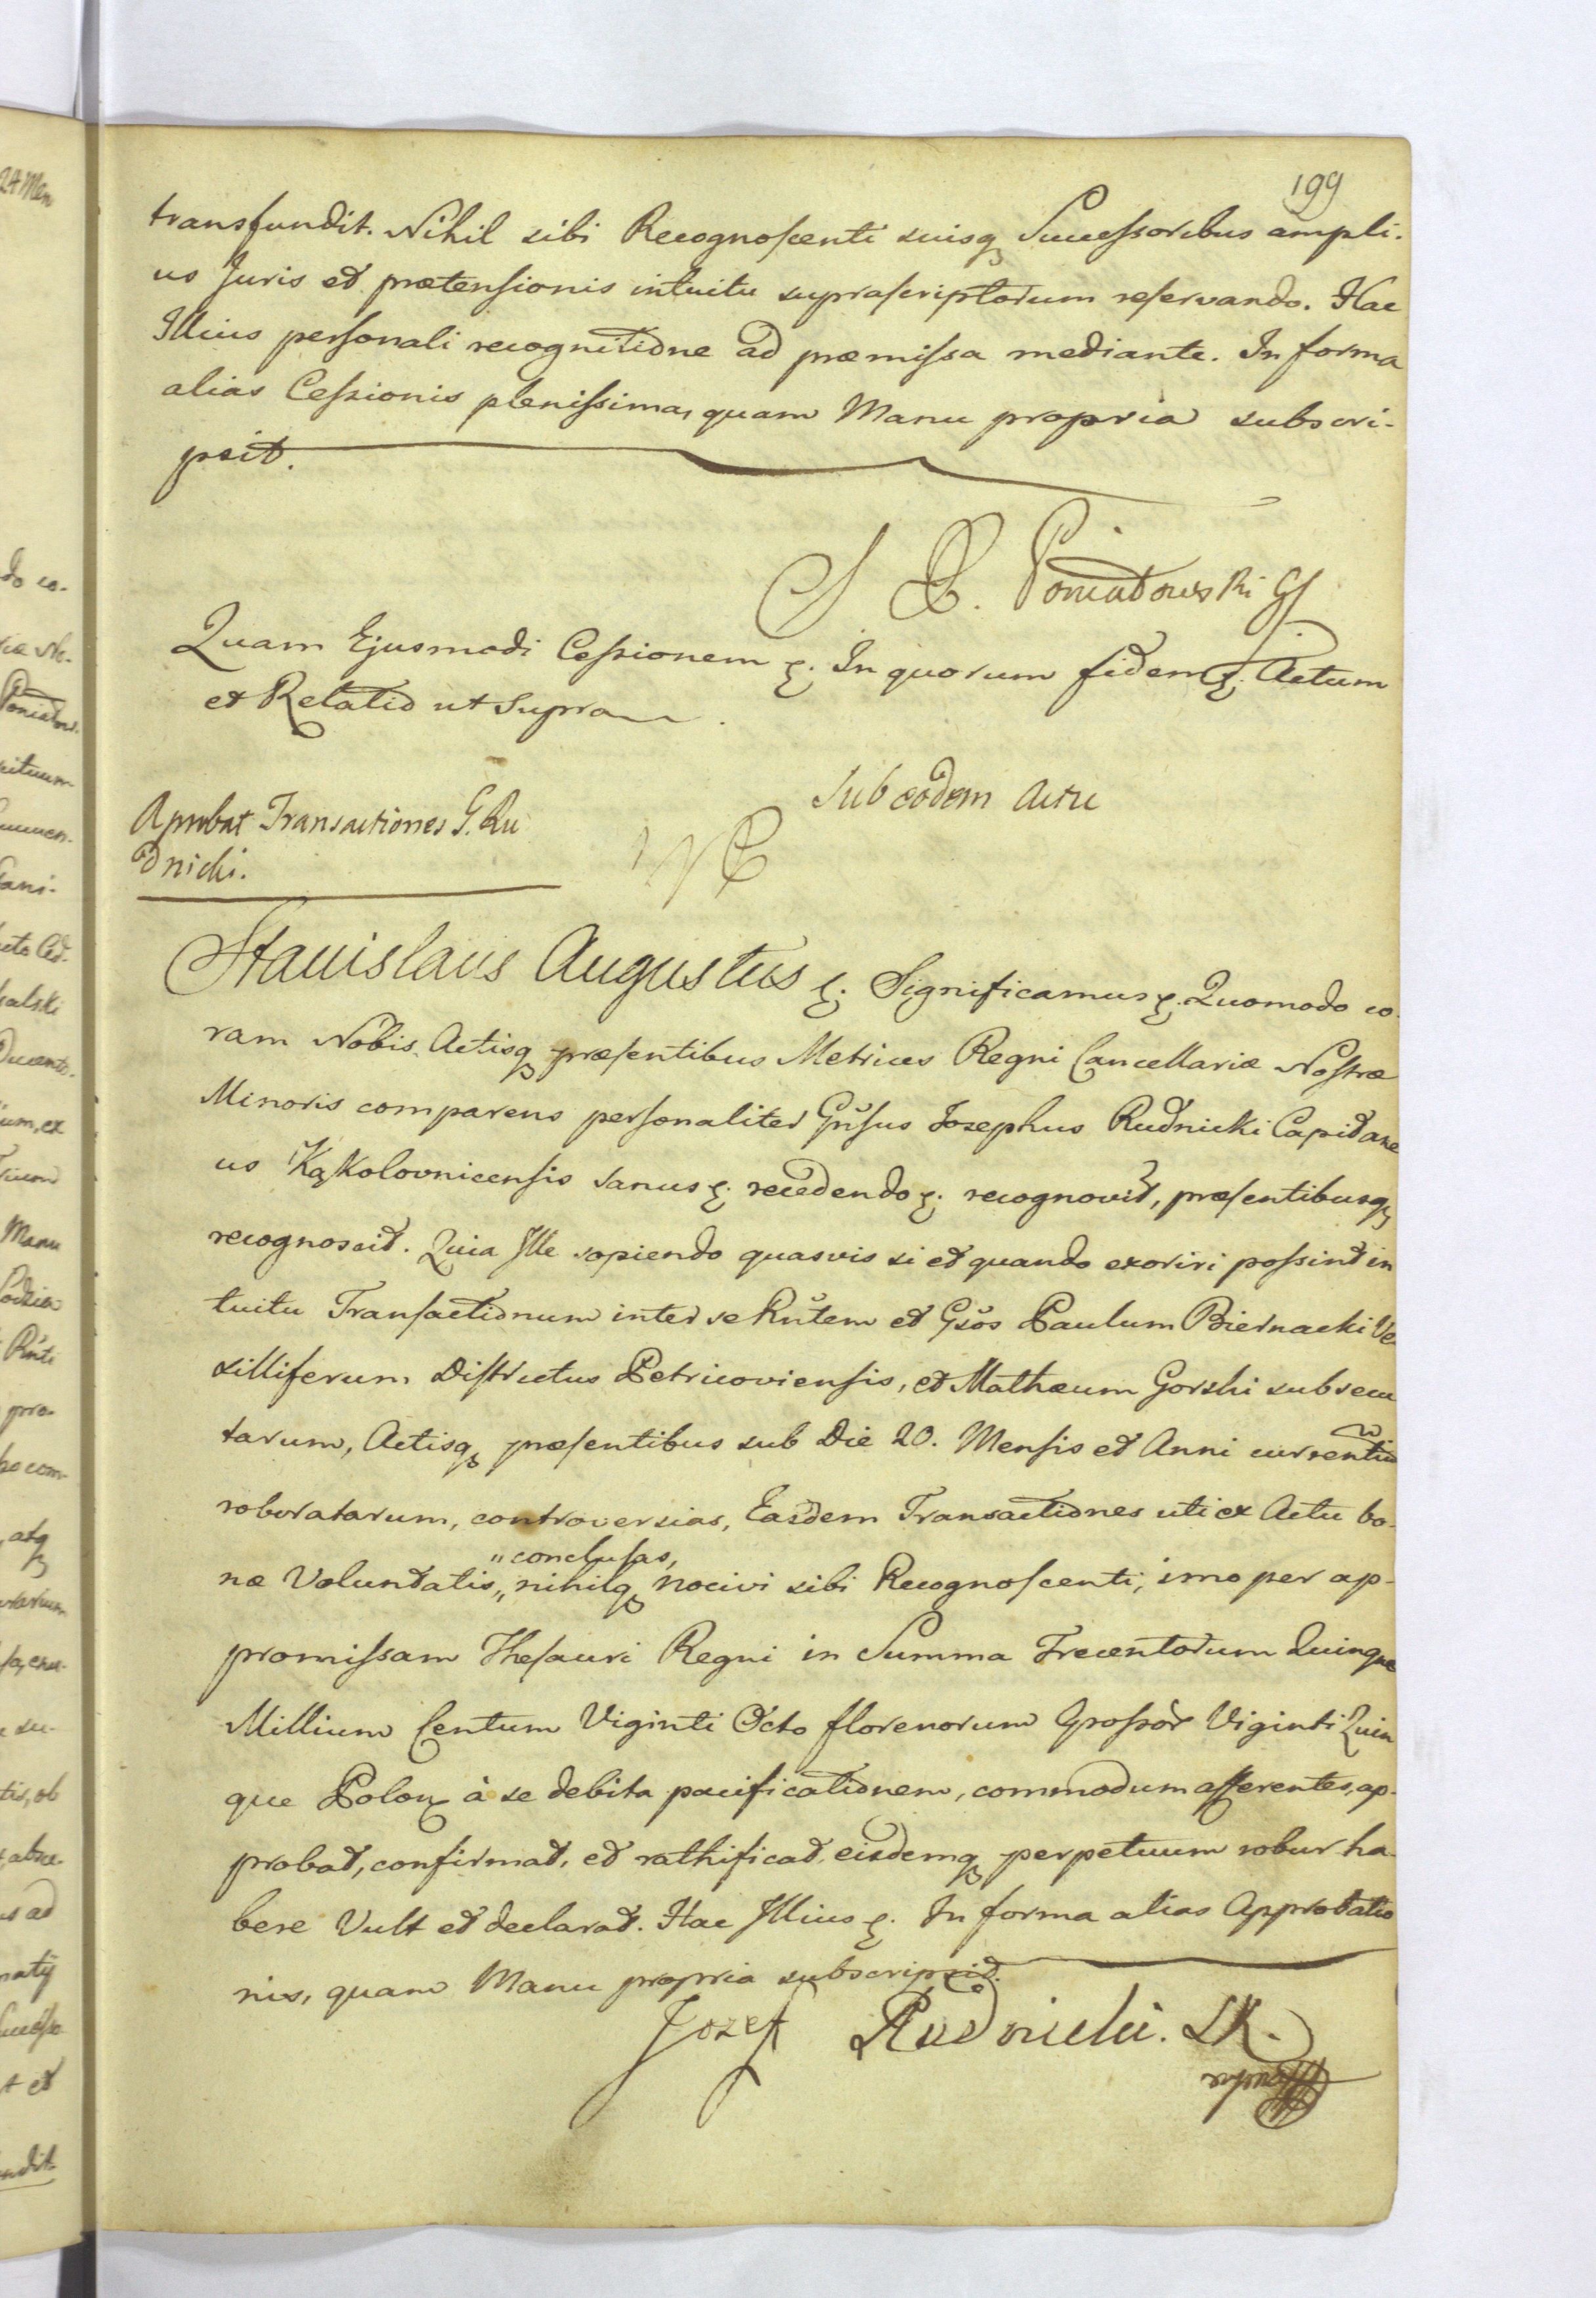 199
transfundit. Nihil sibi Recognoscenti suisq Successoribus ampli-
us Juris et prætensionis intuitu suprascriptorum reservando. Hac
Illius personali recognitione ad præmissa mediante. In forma
alias Cessionis plenissimæ, quam Manu propria subscri-
psit.
S P. Poniatowski
Quam Ejusmodi Cessionem &. In quorum fidem &. Actum
et Relatio ut supra
Sub eodem Actu
Aprobat Transactiones G. Ru
dnicki.
Stanislaus Augustus &. Significamus &. Quomodo co-
ram Nobis Actisq præsentibus Metrices Regni Cancellariæ Nostræ
Minoris comparens personaliter Gñsus Josephus Rudnicki Capitane
us Kąkolovnicensis sanus &. recedendo &. recognovit, præsentibusq
recognoscit. Quia Ille sopiendo quasvis si et quando exoriri possint in
tuitu Transactionum inter se Rñtem et Gsos Paulum Biernacki Ve
xilliferum Districtus Petricoviensis, et Mathæum Gorski subsecu
tarum, Actisq præsentibus sub Die 20. Mensis et Anni currentium
roboratarum, controversias, Easdem Transactiones uti ex Actu bo-
næ Voluntatis „ nihilq nocivi sibi Recognoscenti, imo per ap-
„ conclusas,
promissam Thesauri Regni in Summa Trecentorum Quinque
Millium Centum Viginti Octo florenorum Grossor Viginti Quin
que Polon à se debita pacificationem, commodum afferentes, ap-
probat, confirmat, et rathificat, eisdemq perpetuum robur ha-
bere Vult et declarat. Hac Illius &. In forma alias Approbatio
nis, quam Manu propria subscripsit.
Jozef Rudnicki. SK.